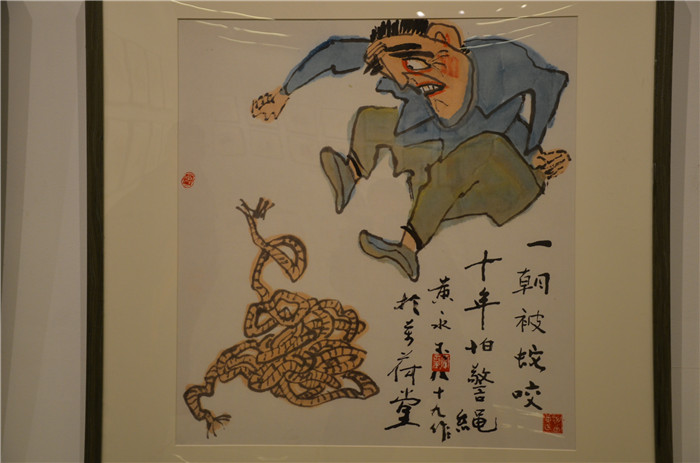 一朝被蛇咬
十年怕警繩
黄永玉八十九作
於萬荷堂